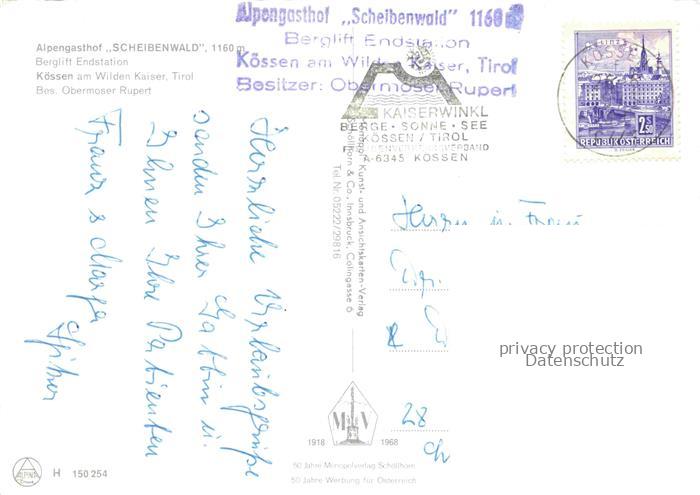 Alpengasthof „SCHEIBENWALD", 1160 m
Berglift Endstation
Kössen am Wilden Kaiser, Tirol
Bes. Obermoser Rupert
Alpengasthof „Scheibenwald" 1160
Berglift Endstation
Kössen am Wilden Kaiser, Tirol
Besitzer: Obermoser Rupert
KAISERWINKL
BERGE · SONNE · SEE
KÖSSEN / TIROL
A-6345 KÖSSEN
LINZ
2.50
REPUBLIK ÖSTERREICH
Herzliche Urlaubsgrüße
senden Ihrer Gattin u.
Ihnen Ihre Patienten
Franz &
Kunst- und Ansichtskarten-Verlag
Schöllhorn & Co., Innsbruck, Colingasse 6
Tel Nr. 05222/29816
Herrn u. Frau
28
privacy protection
Datenschutz
M V
1918 1968
50 Jahre Monopolverlag Schöllhorn
50 Jahre Werbung für Österreich
ALPINA
H 150 254